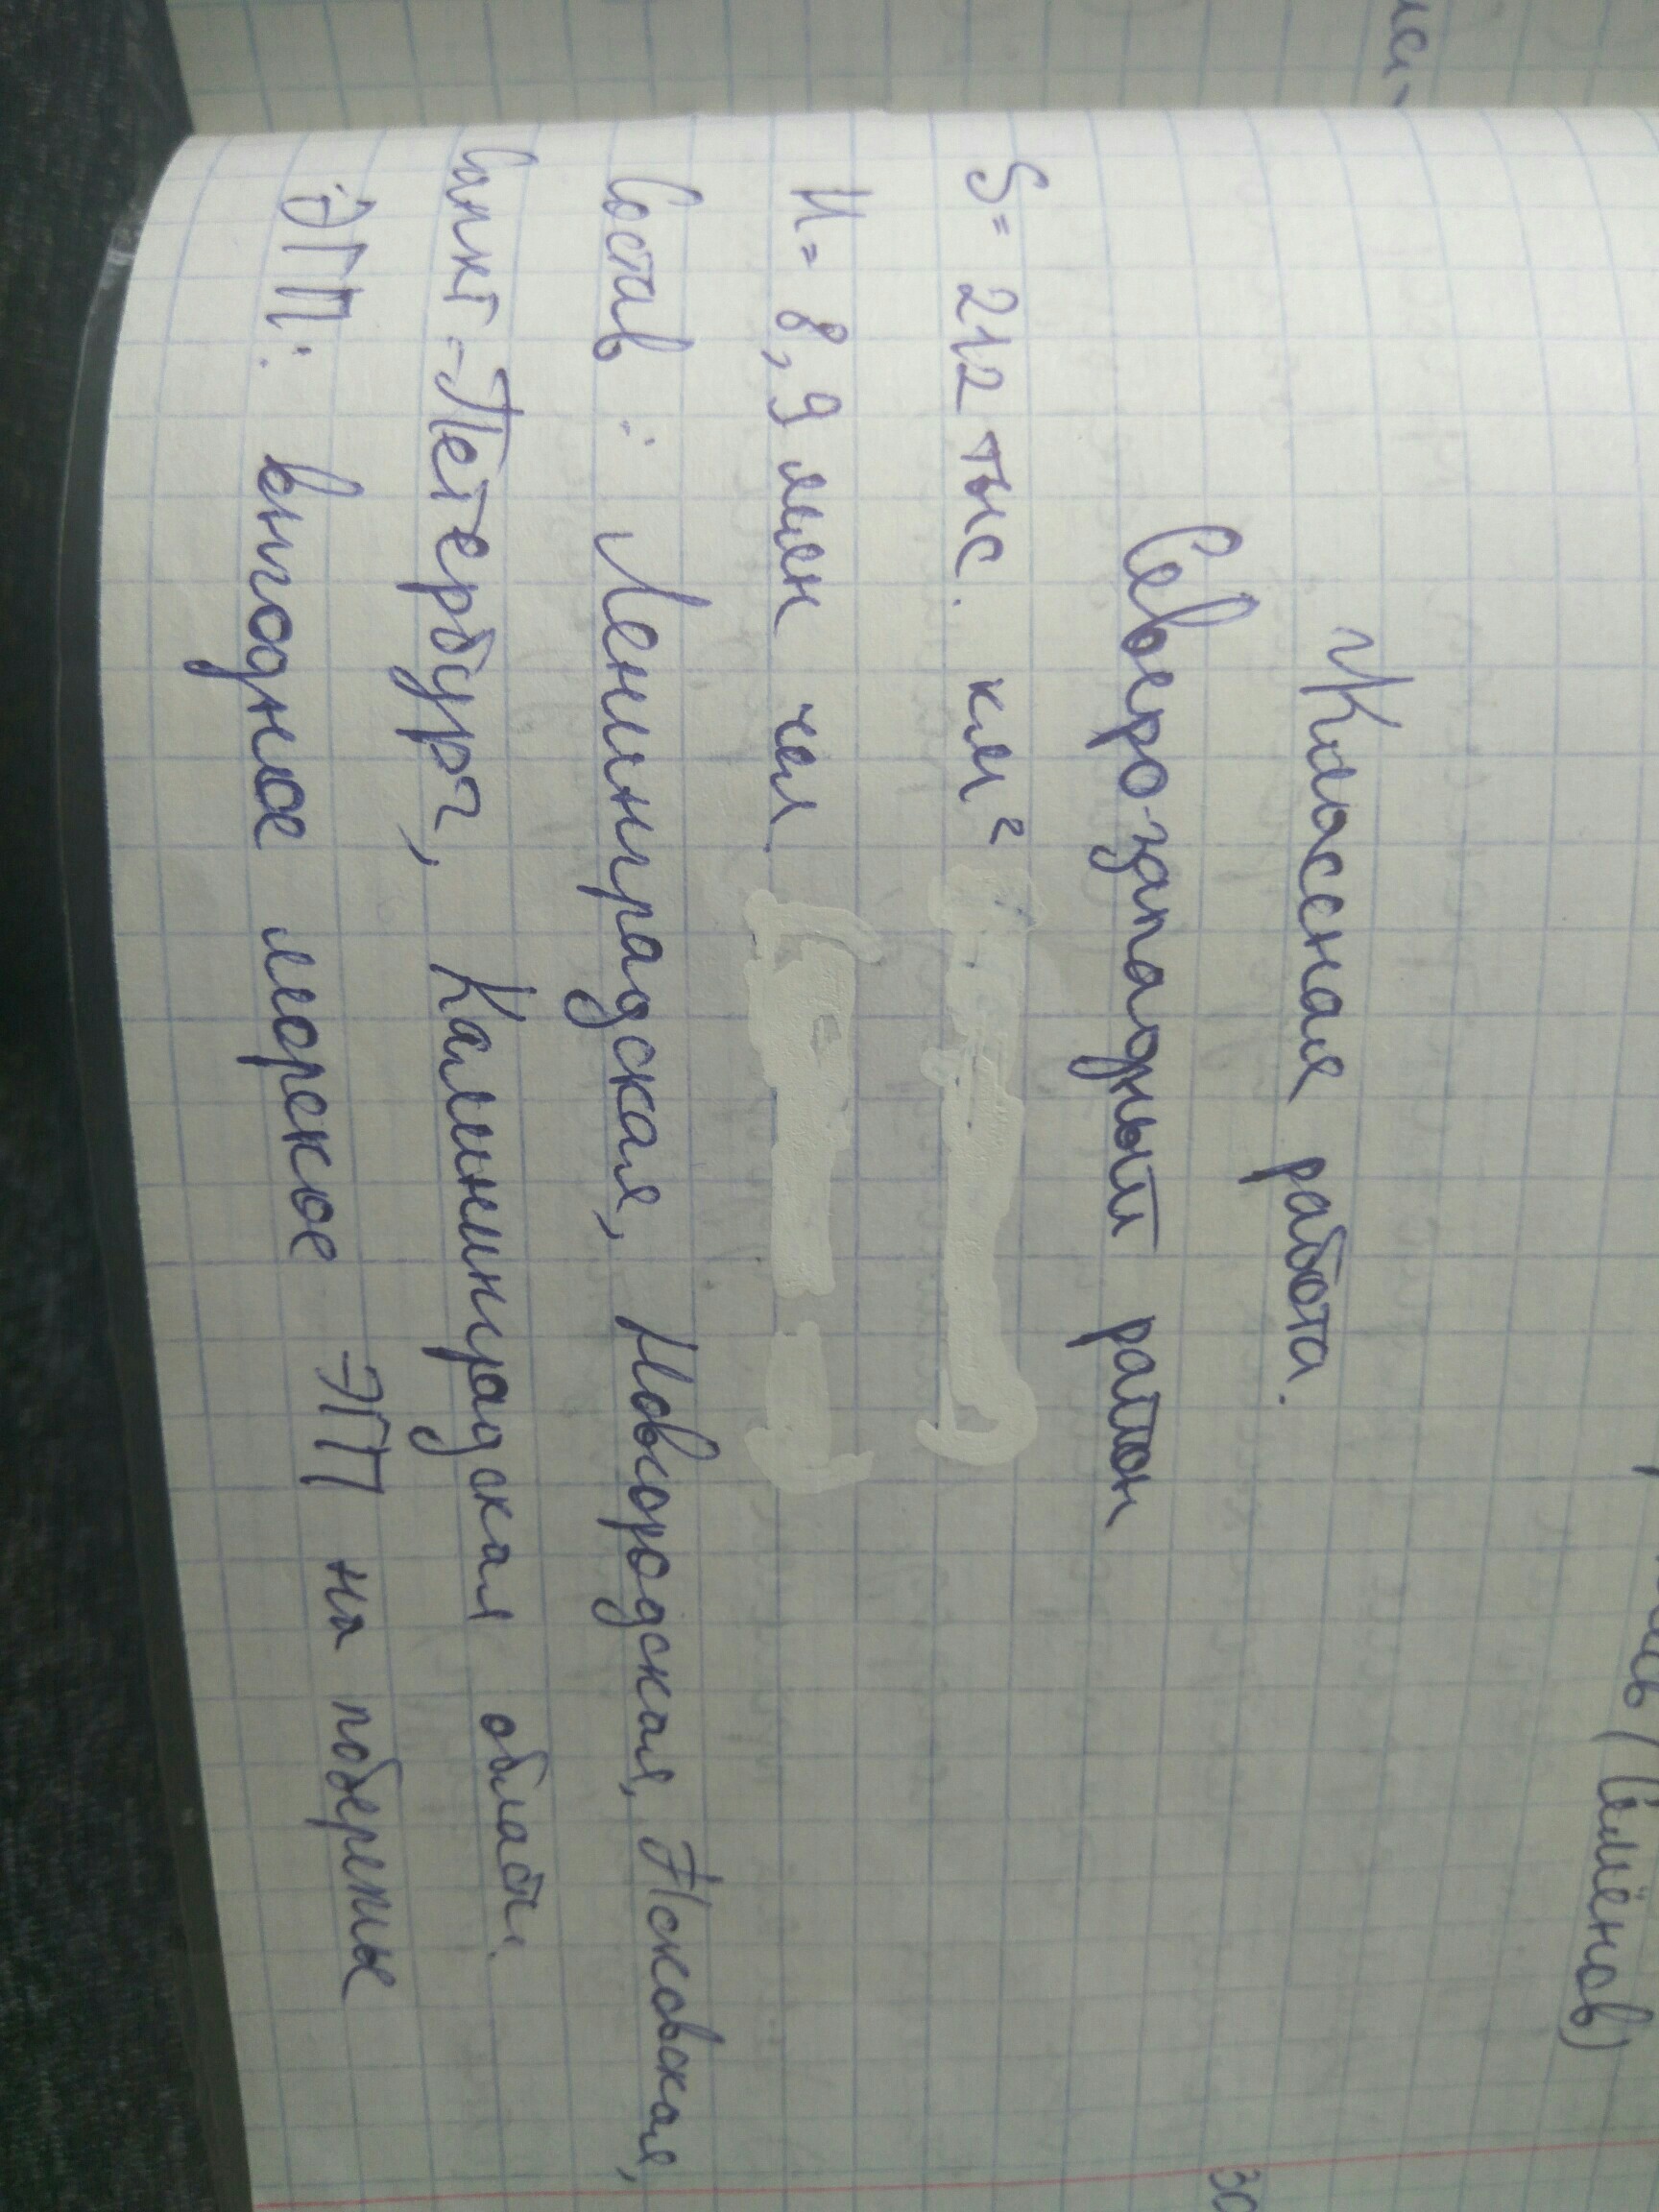 Классная работа.
Северо-западный район
S= 212 тыс. км²
Н= 8,9 млн чел.
Состав: Ленинградская, Новгородская, Псковская,
Санкт-Петербург, Калининградская област.
ЭГП: выгодное морское ЭГП на побережье
(Семёнов)
30